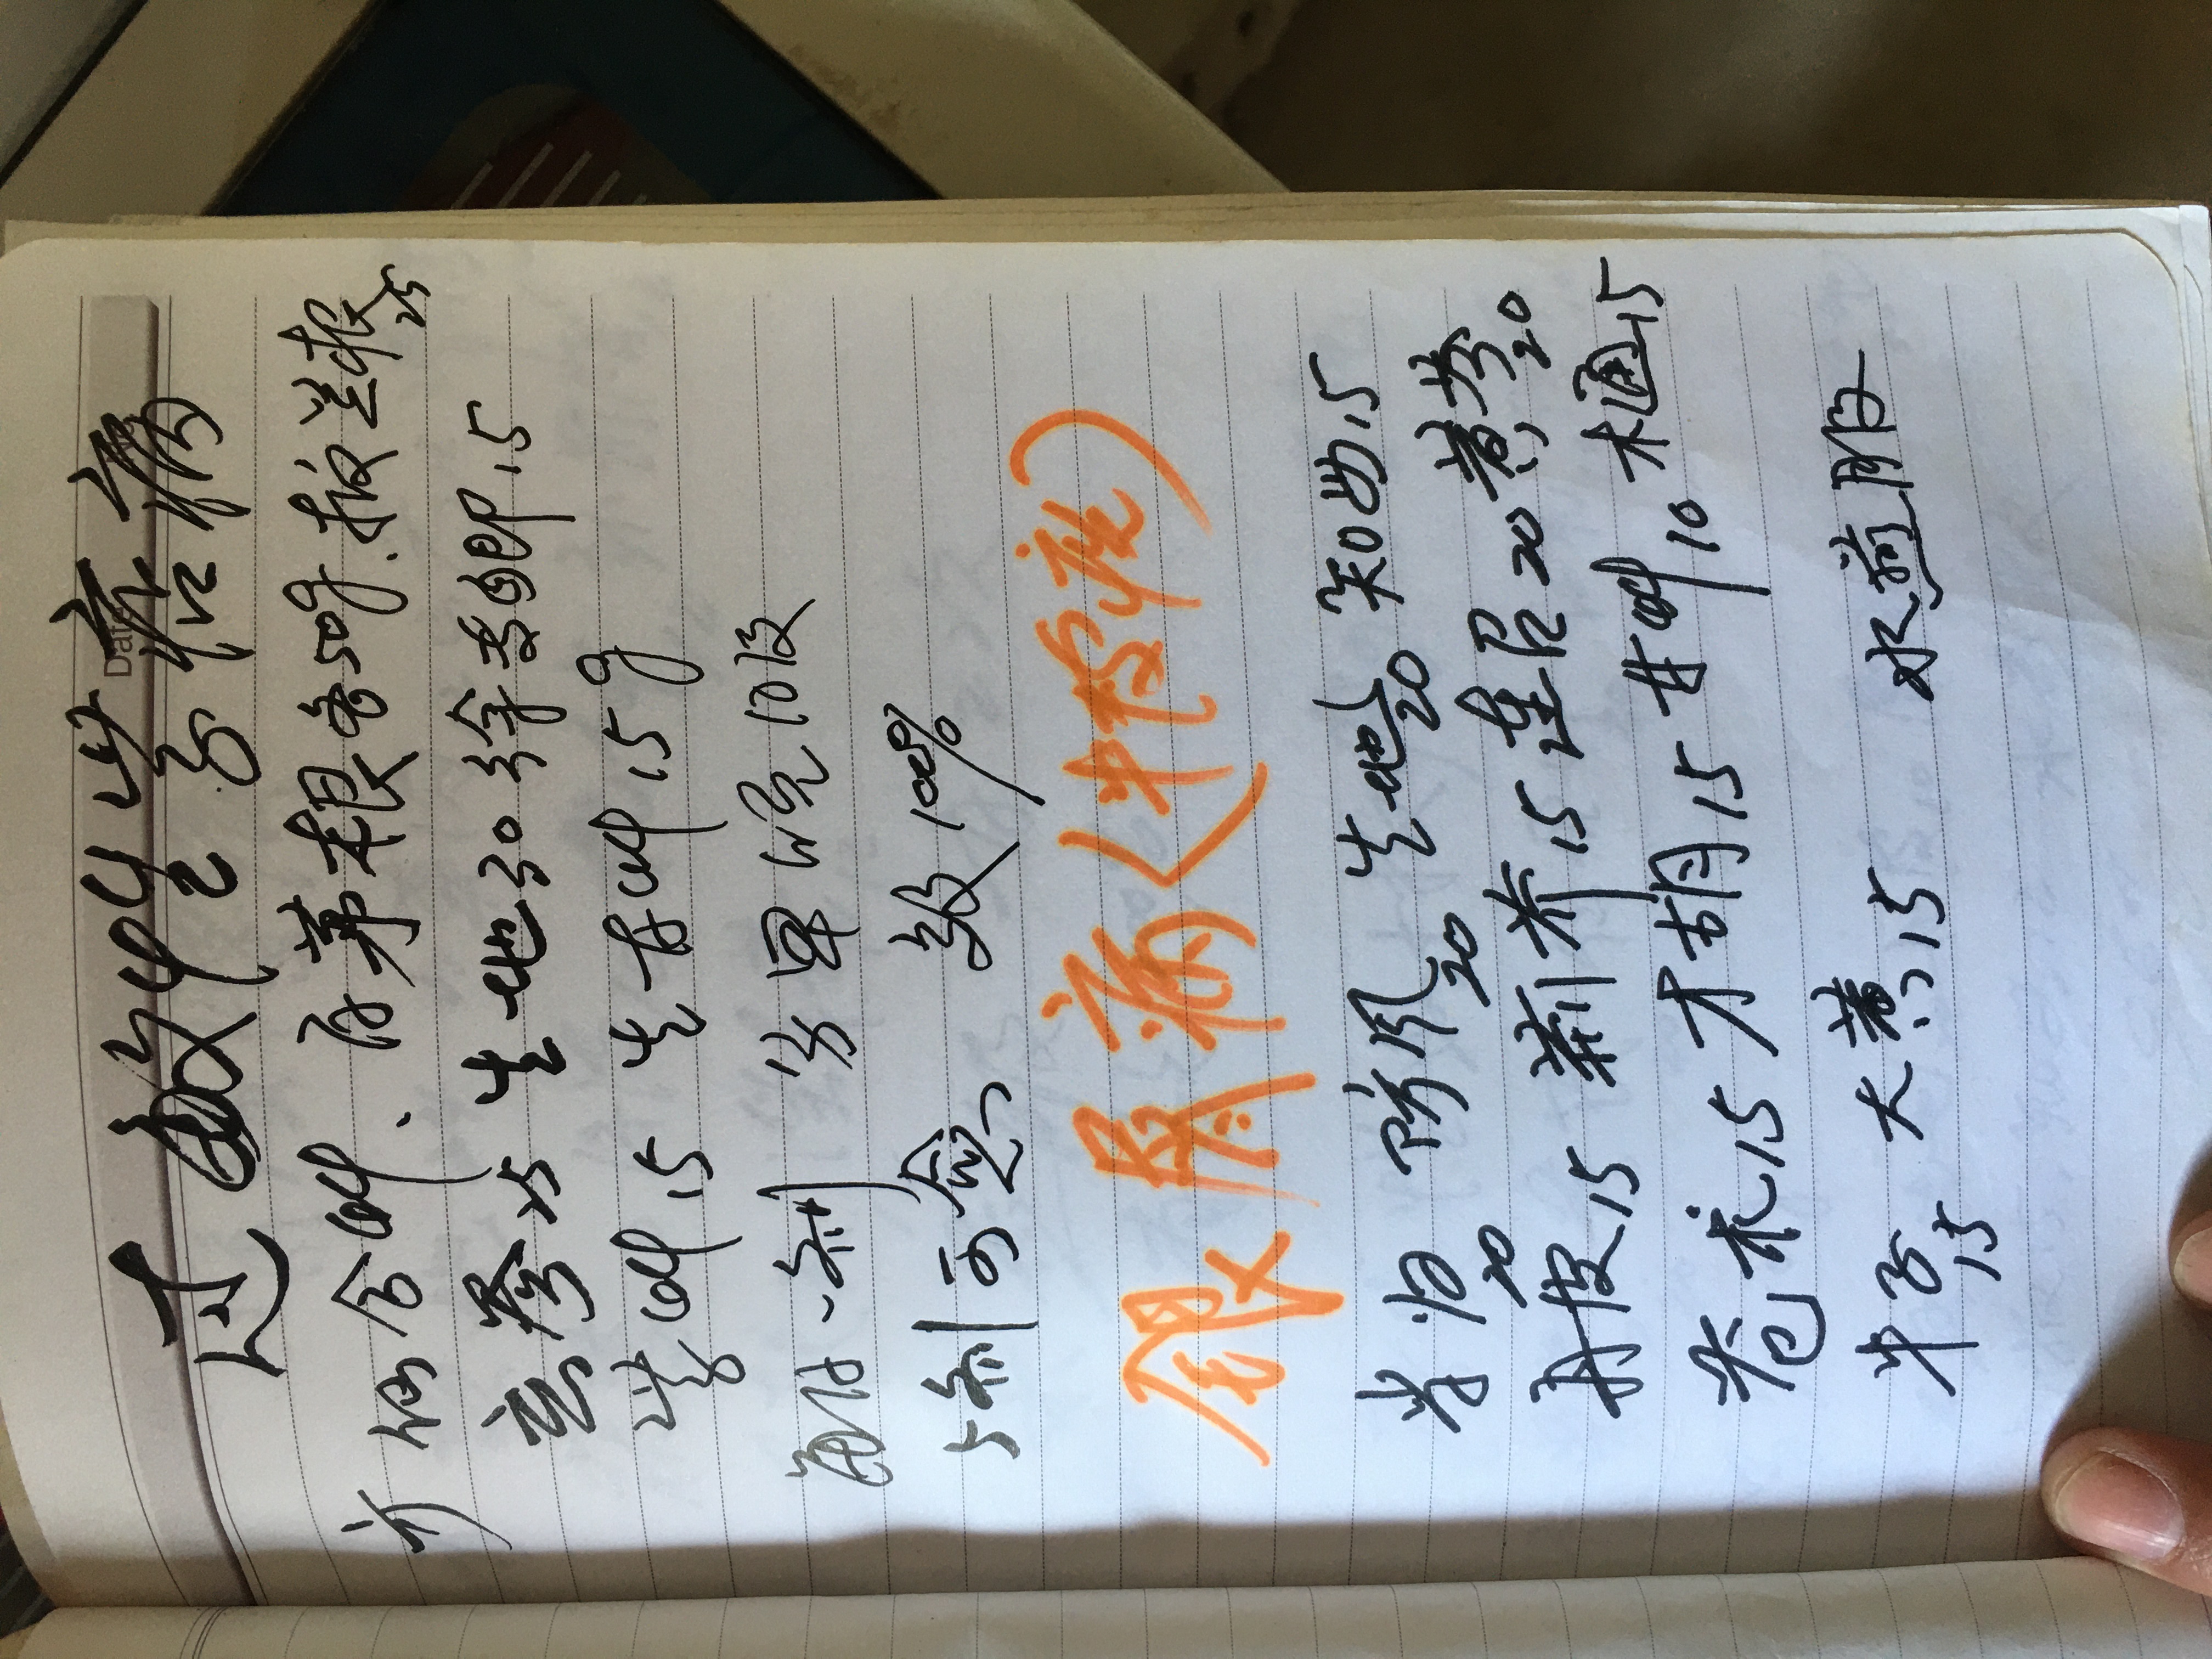 Date
过敏性紫癜病
方 仙合草、白茅根各50g、板兰根25
玄参25 生地30 徐长卿15
紫草15 生甘草15g
每日一剂 分早晚10服
5剂可愈 效100%
银屑病(牛皮癣)
当归20 防风20 生地20 知母15
丹皮15 荆芥15 连召20 黄芩20
苍术15 才胡15 甘草10 木通15
牛子15 大黄15 水煎服